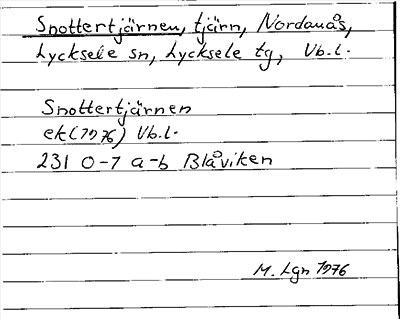 Snottertjärnen, tjärn, Nordanås,
Lycksele sn, Lycksele tg, Vb.l.
Snottertjärnen
ek(1976) Vb.l.
231 0-7 a-b Blåviken
M. Lgn 1976